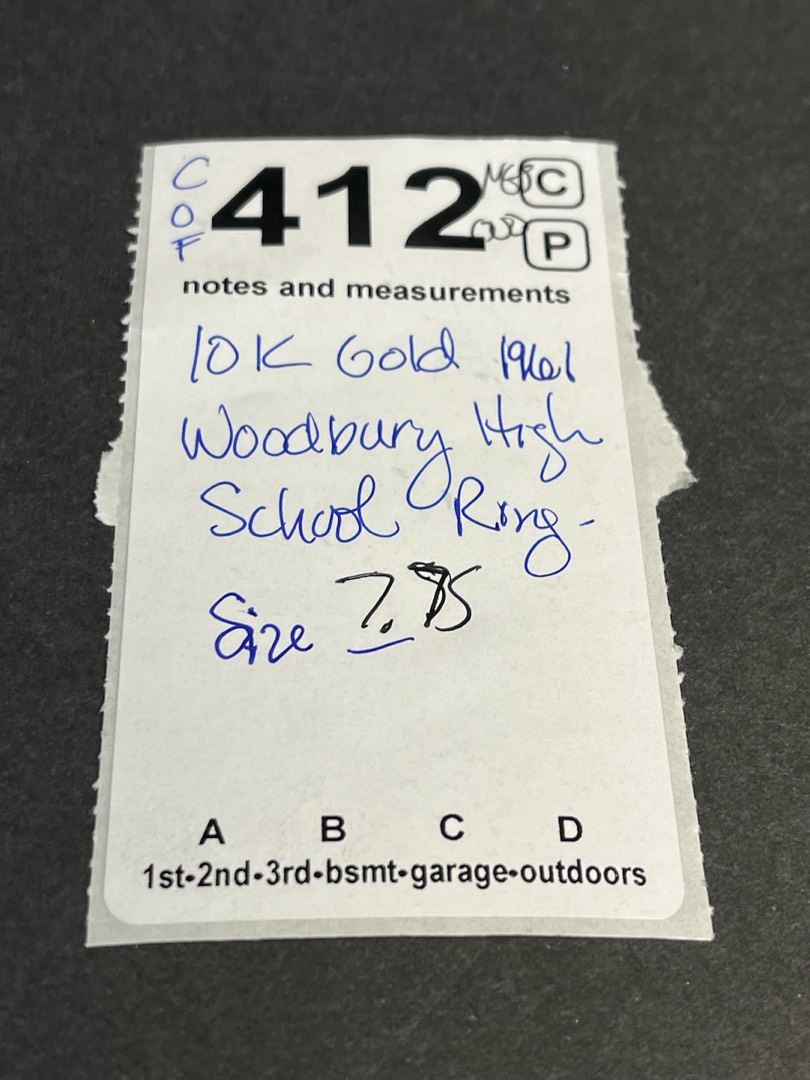 C
O
F
412
C
P
notes and measurements
10K Gold 1961
Woodbury High
School Ring-
Size 7.
A B C D
1st•2nd•3rd•bsmt•garage•outdoors